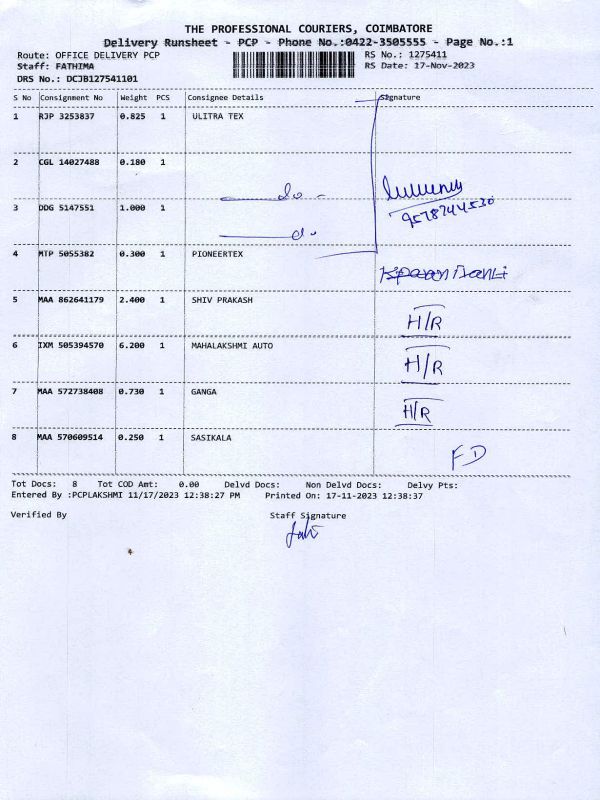 THE PROFESSIONAL COURIERS, COIMBATORE
Delivery Runsheet - PCP - Phone No.:0422-3505555 - Page No.:1
Route: OFFICE DELIVERY PCP RS No.: 1275411
Staff: FATHIMA RS Date: 17-Nov-2023
DRS No.: DCJB127541101
S No Consignment No Weight PCS Consignee Details Signature
1 RJP 3253837 0.825 1 ULITRA TEX
2 CGL 14027488 0.180 1
do -
3 DDG 5147551 1.000 1
9578744530
d.
4 MTP 5055382 0.300 1 PIONEERTEX
5 MAA 862641179 2.400 1 SHIV PRAKASH
H/R
6 IXM 505394570 6.200 1 MAHALAKSHMI AUTO
H/R
7 MAA 572738408 0.730 1 GANGA
H/R
8 MAA 570609514 0.250 1 SASIKALA
FD
Tot Docs: 8 Tot COD Amt: 0.00 Delvd Docs: Non Delvd Docs: Delvy Pts:
Entered By :PCPLAKSHMI 11/17/2023 12:38:27 PM Printed On: 17-11-2023 12:38:37
Verified By Staff Signature